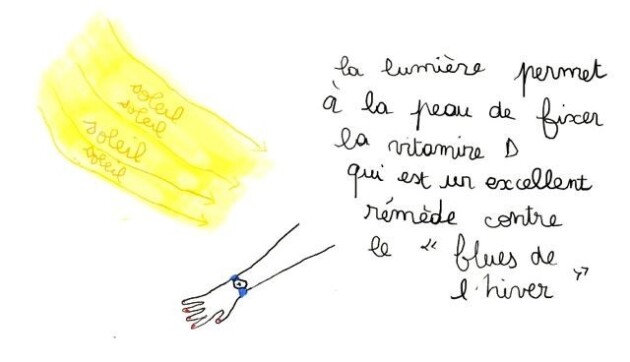 soleil
soleil
soleil
soleil
la lumière permet
à la peau de fixer
la vitamine D
qui est un excellent
rémède contre
le " blues de
l'hiver "